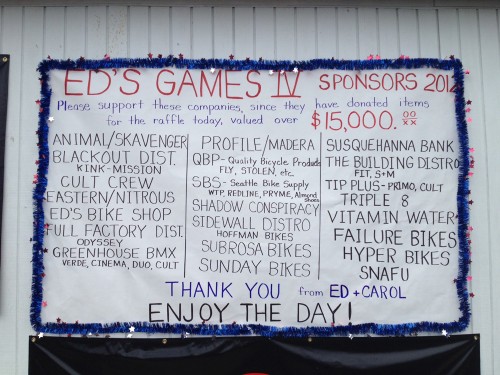 ED'S GAMES IV SPONSORS 2012
Please support these companies, since they have donated items
for the raffle today, valued over $15,000. 00/xx
ANIMAL/SKAVENGER
BLACKOUT DIST.
KINK-MISSION
CULT CREW
EASTERN/NITROUS
ED'S BIKE SHOP
FULL FACTORY DIST.
ODYSSEY
GREENHOUSE BMX
VERDE, CINEMA, DUO, CULT
PROFILE/MADERA
QBP- Quality Bicycle Products
FLY, STOLEN, etc.
SBS- Seattle Bike Supply
WTP, REDLINE, PRYME, Almond Shoes
SHADOW CONSPIRACY
SIDEWALL DISTRO
HOFFMAN BIKES
SUBROSA BIKES
SUNDAY BIKES
SUSQUEHANNA BANK
THE BUILDING DISTRO
FIT, S+M
TIP PLUS-PRIMO, CULT
TRIPLE 8
VITAMIN WATER
FAILURE BIKES
HYPER BIKES
SNAFU
THANK YOU from ED + CAROL
ENJOY THE DAY!